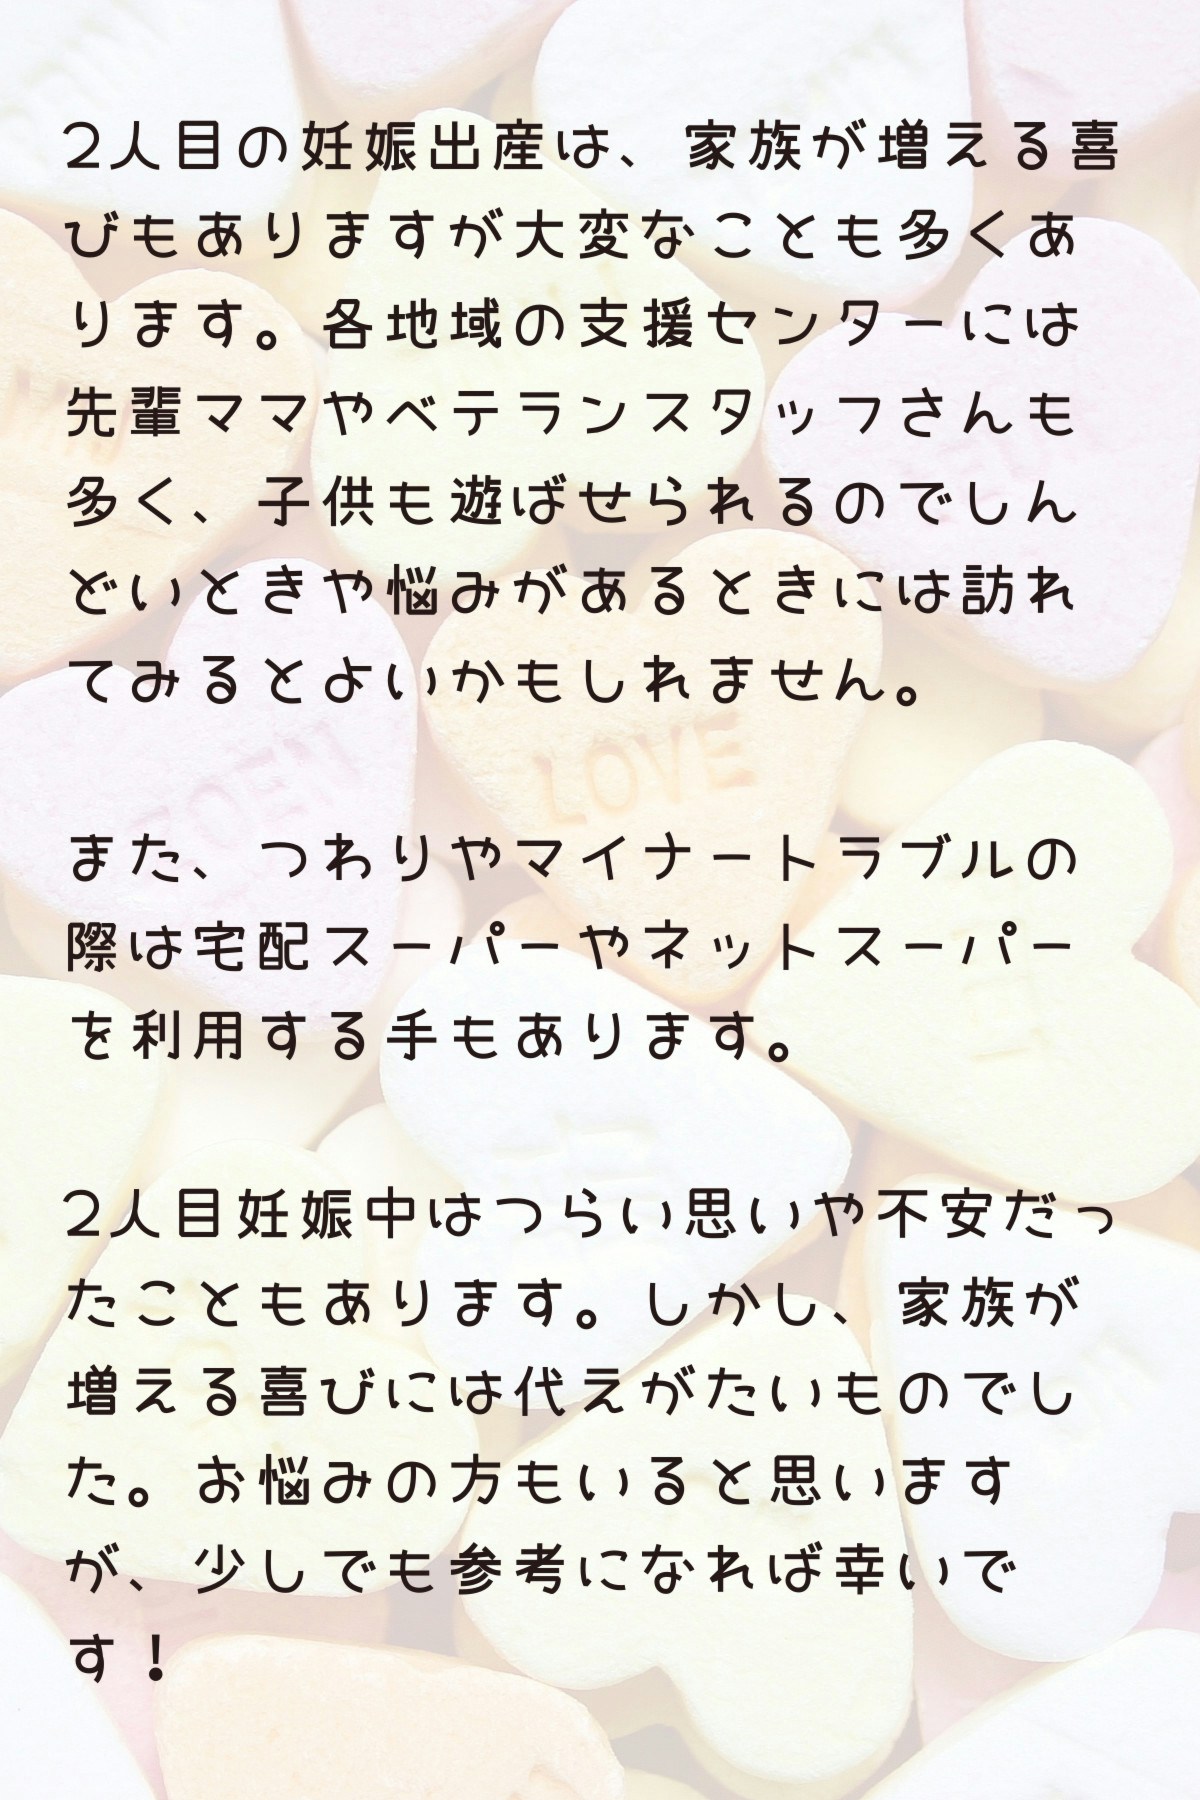 2人目の妊娠出産は、家族が増える喜
びもありますが大変なことも多くあ
ります。各地域の支援センターには
先輩ママやベテランスタッフさんも
多く、子供も遊ばせられるのでしん
どいときや悩みがあるときには訪れ
てみるとよいかもしれません。
また、つわりやマイナートラブルの
際は宅配スーパーやネットスーパー
を利用する手もあります。
2人目妊娠中はつらい思いや不安だっ
たこともあります。しかし、家族が
増える喜びには代えがたいものでし
た。お悩みの方もいると思います
が、少しでも参考になれば幸いで
す！
LOVE